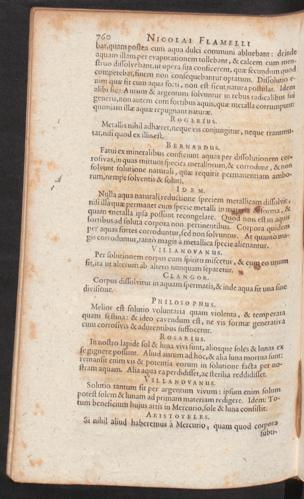 760 NICOLAI FLAMELLI
bat, quam postea cum aqua dulci communi abluebant: deinde
aquam illam per evaporationem tollebant, & calcem cum men-
struo dissolvebant, ut opera sua conficerent, quæ secundum quod
competebat, finem non consequebantur optatum. Dissolutio e-
nim quæ fit cum aqua forti, non est sicut natura postulat. Idem
alibi sic: Aurum & argentum solvuntur in rebus radicalibus sui
generis, non autem cum fortibus aquis, quæ metalla corrumpunt:
quoniam illæ aquæ repugnant naturæ.
ROGERIUS.
Metallis nihil adhæret, neque eis conjungitur, neque transmu-
tat, nisi quod ex illis est.
BERNARDUS.
Fatui ex mineralibus conficiunt aquam per dissolutionem cor-
rosivas, in quas mittunt species metallorum, & corrodunt, & non
solvunt solutione naturali, quæ requirit permanentiam ambo-
rum, nempe solventis & soluti.
IDEM.
Nulla aqua naturali reductione speciem metallicam dissolvit,
nisi illa quæ permanet cum specie metalli in materia & forma, &
quam metalla ipsa possint recongelare. Quod non est in aquis
fortibus ad soluta corpora non pertinentibus. Corpora quidem
per aquas fortes corroduntur, sed non solvuntur. At quanto ma-
gis corroduntur, tanto magis à metallica specie alienantur.
VILLANOVANUS.
Per solutionem corpus cum spiritu miscetur, & cum eo unum
fit, ita ut alterum ab altero nunquam separetur.
CLANGOR.
Corpus dissolvitur in aquam spermatis, & inde aqua fit una sine
divisione.
PHILOSOPHUS.
Melior est solutio voluntaria quam violenta, & temperata
quam festina: & ideo cavendum est, ne vis formæ generativa
cum corrosivis & adurentibus suffocetur.
ROSARIUS.
In nostro lapide sol & luna vivi sunt, alioque soles & lunas ex
se gignere possunt. Aliud aurum ad hoc, & alia luna mortua sunt:
remansit enim vis & potentia eorum in solutione facta per no-
stram aquam. Alia aqua ea perdidisset, ac sterilia reddidisset.
VILLANOVANUS.
Solutio tantum fit per argentum vivum: ipsum enim solum
potest solem & lunam ad primam materiam redigere. Idem: To-
tum beneficium hujus artis in Mercurio, sole & luna consistit.
ARISTOTELES.
Si nihil aliud haberemus à Mercurio, quam quod corpora
subti-